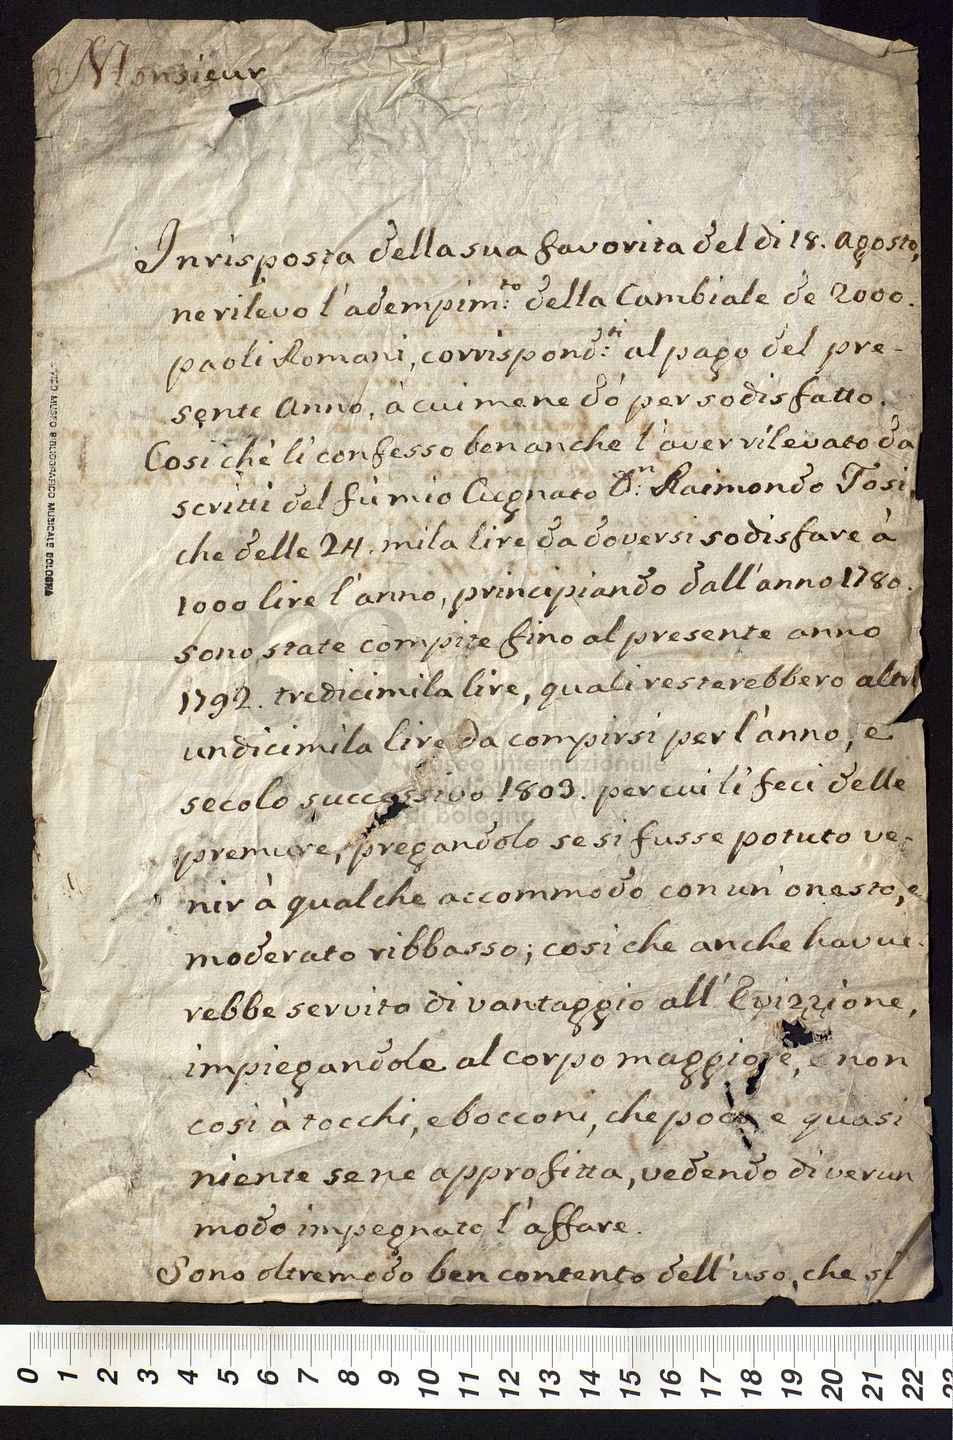 Monsieur
In risposta della sua favorita del di 18. Agosto,
ne rilevo l'adempim:to della Cambiale de 2000.
paoli Romani, corrispond:ti al pago del pre-
sente Anno, à cui me ne dò per sodisfatto.
Cosi chè li confesso ben anche l'aver rilevato da
scritti del fù mio Cugnato D:n Raimondo Tosi,
che delle 24. mila lire da doversi sodisfare à
1000 lire l'anno, principiando dall'anno 1780.
sono state compite fino al presente anno
1792. tredicimila lire, quali resterebbero altri
undicimila lire da compirsi per l'anno, e
secolo successivo 1803. per cui li feci delle
premure, pregandolo se si fusse potuto ve-
nir à qualche accommodo con un' onesto, e
moderato ribbasso; cosi che anche havve-
rebbe servito di vantaggio all' Evizzione,
impiegandole al corpo maggiore, e non
cosi à tocchi, e bocconi, che poco, e quasi
niente se ne approfitta, vedendo di verun
modo impegnato l'affare.
Sono oltremodo ben contento dell'uso, che si
CIVICO MUSEO BIBLIOGRAFICO MUSICALE BOLOGNA
museo internazionale
di bologna
0 1 2 3 4 5 6 7 8 9 10 11 12 13 14 15 16 17 18 19 20 21 22 23